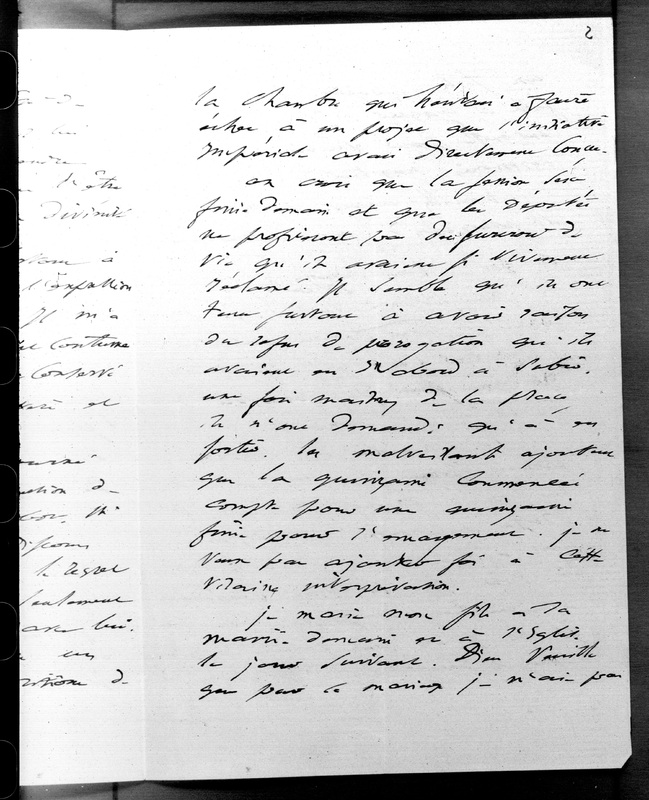 2
la chambre qui hésitait a
échec à un projet que l'initiative
Impériale avait directement
on croit que la session sera
finie demain et que les Députés
ne profiteront pas du surcroit de
vie qu'ils avaient si vivement
réclamé. Il semble qu'ils ont
tenu surtout à avoir raison
du refus de prorogation qu'ils
avaient eu d'abord à subir.
une fois maitres de la place
ils n'ont demandé qu'à en
sortir. les malveillants ajoutent
que la quinzaine commencée
compte pour une quinzaine
finie pour l'émargement. je ne
veux pas ajouter foi à cette
vilaine interprétation.
je marie mon fils à la
mairie demain et à l'Eglise
le jour suivant. Dieu veuille
que pour ce mariage je n'aie pas
d'être
Divinité
à
l'expulsion
Il m'a
Coutume
Conservé
et
Discours
le regret
seulement
avec lui.
en